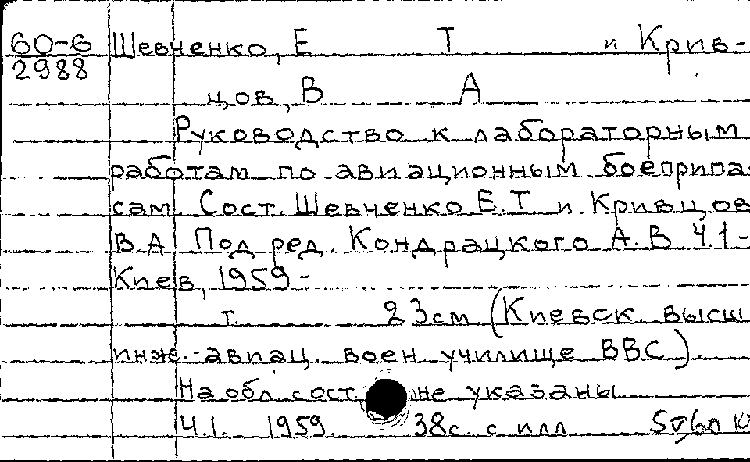 60-6 Шевченко, Е Т и Крив-
2988
цов, В А
Руководство к лабораторным
работам по авиационным боеприпа-
сам. Сост. Шевченко Е.Т и Кривцов
В.А Под ред. Кондрацкого А.В Ч.1-
Киев, 1959-
т. 23см (Киевск высш
инж.-авиац. воен училище ВВС)
На обл сост. не указаны
Ч.1. 1959. 38с. с илл